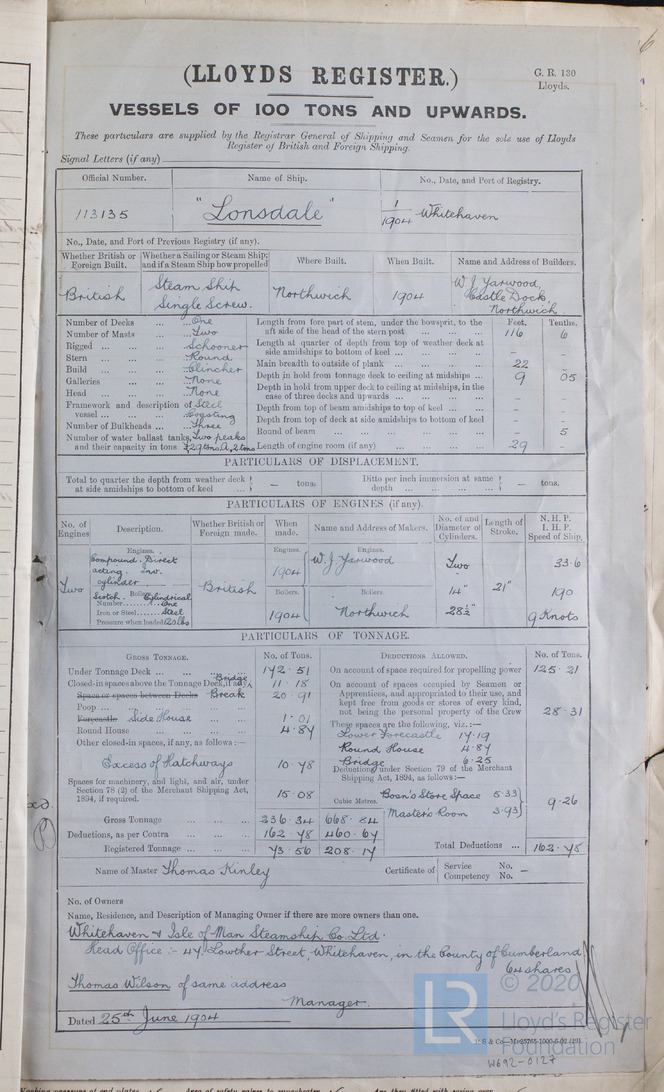 (LLOYDS REGISTER.)
G. R. 130
Lloyds.
VESSELS OF 100 TONS AND UPWARDS.
These particulars are supplied by the Registrar General of Shipping and Seamen for the sole use of Lloyds
Register of British and Foreign Shipping.
Signal Letters (if any)
Official Number. Name of Ship. No., Date, and Port of Registry.
113135 "Lonsdale" 1/1904 Whitehaven
No., Date, and Port of Previous Registry (if any).
Whether British or Foreign Built. Whether a Sailing or Steam Ship; and if a Steam Ship how propelled Where Built. When Built. Name and Address of Builders.
British Steam Ship Single Screw. Northwich 1904 W. J. Yarwood, Castle Dock, Northwich
Feet. Tenths.
Number of Decks ... ... One
Number of Masts ... ... Two
Rigged ... ... ... Schooner
Stern ... ... ... Round
Build ... ... ... Clincher
Galleries ... ... None
Head ... ... ... None
Framework and description of vessel ... ... Steel Coasting
Number of Bulkheads ... Three
Number of water ballast tanks, Two peaks
and their capacity in tons F 29 tons, A. 2 tons
Length from fore part of stem, under the bowsprit, to the
aft side of the head of the stern post ... ... ... 116 6
Length at quarter of depth from top of weather deck at
side amidships to bottom of keel ... ... ... - -
Main breadth to outside of plank ... ... ... 22 -
Depth in hold from tonnage deck to ceiling at midships ... 9 05
Depth in hold from upper deck to ceiling at midships, in the
case of three decks and upwards ... ... ... - -
Depth from top of beam amidships to top of keel ... - -
Depth from top of deck at side amidships to bottom of keel - -
Round of beam ... ... ... - 5
Length of engine room (if any) ... ... ... 29 -
PARTICULARS OF DISPLACEMENT.
Total to quarter the depth from weather deck at side amidships to bottom of keel ... — tons.
Ditto per inch immersion at same depth ... ... ... — tons.
PARTICULARS OF ENGINES (if any).
No. of Engines Description. Whether British or Foreign made. When made. Name and Address of Makers. No. of and Diameter of Cylinders. Length of Stroke. N. H. P. I. H. P. Speed of Ship.
Engines. Engines. Engines.
Two Compound. Direct acting. Inv. cylinder British 1904 W. J. Yarwood Two 21" 33.6
Boilers. Boilers. Boilers
Scotch. Cylindrical 14" 190
Number........One
Iron or Steel......Steel 1904 Northwich 28½" 9 Knots
Pressure when loaded 120 lbs
PARTICULARS OF TONNAGE.
GROSS TONNAGE. No. of Tons.
Under Tonnage Deck ... ... 172.51
Closed-in spaces above the Tonnage Deck, if any Bridge 11.18
Space or spaces between Decks Break 20.91
Poop ... ... ...
Forecastle Side House ... 1.01
Round House ... ... ... 4.87
Other closed-in spaces, if any, as follows:—
Excess of Hatchways 10.78
Spaces for machinery, and light, and air, under
Section 78 (2) of the Merchant Shipping Act,
1894, if required. 15.08
Cubic Metres.
Gross Tonnage ... 236.34 668.84
Deductions, as per Contra ... ... 162.78 460.67
Registered Tonnage ... ... 73.56 208.17
DEDUCTIONS ALLOWED. No. of Tons.
On account of space required for propelling power 125.21
On account of spaces occupied by Seamen or
Apprentices, and appropriated to their use, and
kept free from goods or stores of every kind,
not being the personal property of the Crew 28.31
These spaces are the following, viz.:—
Lower Forecastle 17.19
Round House 4.87
Bridge 6.25
Deductions under Section 79 of the Merchant
Shipping Act, 1894, as follows:—
Boan's Store Space 5.33
Master's Room 3.93
9.26
Total Deductions ... 162.78
Name of Master Thomas Kinley Certificate of Service No. Competency No. —
No. of Owners
Name, Residence, and Description of Managing Owner if there are more owners than one.
Whitehaven & Isle of Man Steamship Co. Ltd.
Head Office :- 47, Lowther Street, Whitehaven, in the County of Cumberland
64 shares
Thomas Wilson of same address
Manager.
Dated 25th June 1904
© 2020
LR
Lloyd's Register
Foundation
W692-0127